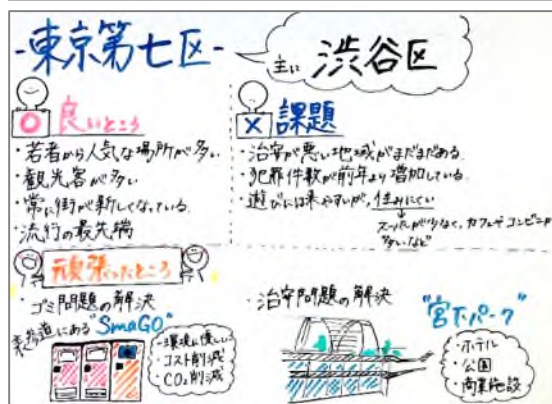 -東京第七区-
主に 渋谷区
○ 良いところ
・若者から人気な場所が多い
・観光客が多い
・常に街が新しくなっている
・流行の最先端
× 課題
・治安が悪い地域がまだまだある
・犯罪件数が前年より増加している
・遊びには来やすいが、住みにくい
スーパーが少なく、カフェやコンビニが
多い など
頑張ったところ
・ゴミ問題の解決
表参道にある "SmaGO"
・環境に優しい
・コスト削減
・CO₂削減
・治安問題の解決
"宮下パーク"
・ホテル
・公園
・商業施設